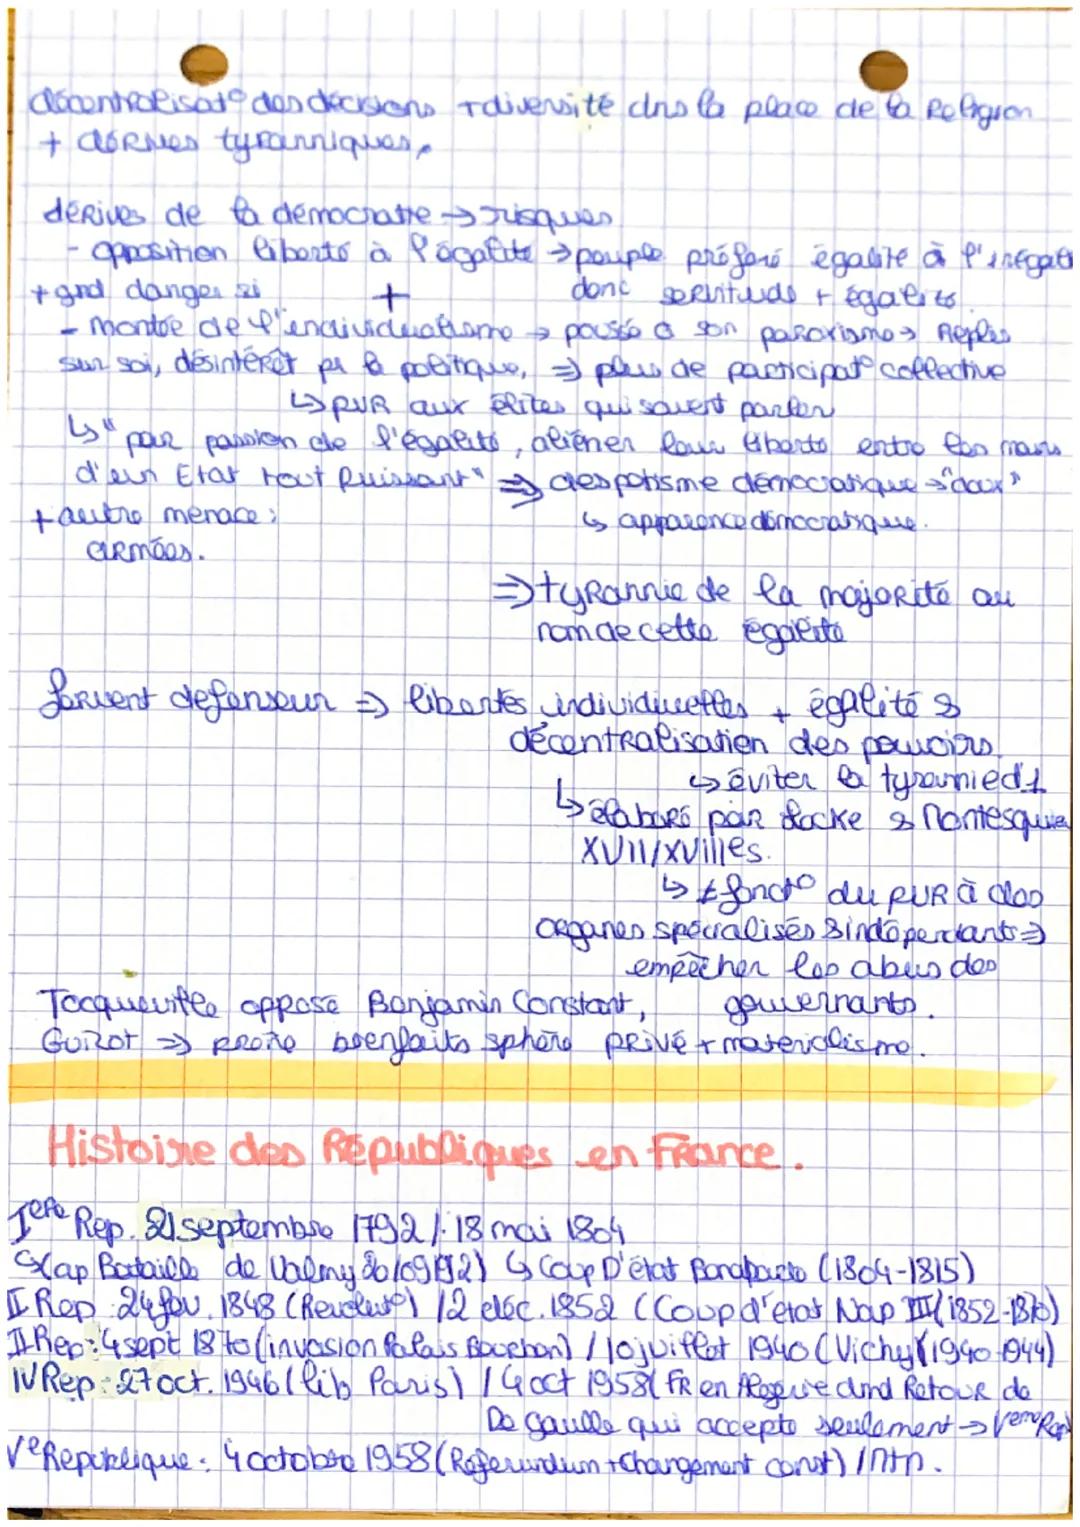 décentralisat° des décisions + diversité dns la place de la Religion
+ dérives tyranniques.
dérives de la démocratie → risques
- opposition liberté à l'égalité → peuple préfère égalité à l'inégalt
+ grd danger si + donc servitude + égalité.
- montée de l'individualisme → poussé à son paroxisme → Replis
sur soi, désintérêt pr la politique, ⇒ plus de participat° collective
↳ PVR aux élites qui savent parler
↳ "par passion de l'égalité, aliéner leur liberté entre les mains
d'un Etat tout Puissant" ⇒ despotisme démocratique → "doux"
+ autre menace : ↳ apparence démocratique.
armées.
⇒ tyrannie de la majorité au
nom de cette égalité
fervent defenseur ⇒ libertés individuelles + égalité &
décentralisation des pouvoirs.
↳ éviter la tyrannie d'1
↳ élaboré par Locke & Montesquieu
XVII/XVIIIes.
↳ ≠ fonct° du PVR à des
organes spécialisés & indépendants ⇒
empêcher les abus des
Tocqueville oppose Benjamin Constant, gouvernants.
Guizot ⇒ prône bienfaits sphère privé + materialisme.
Histoire des Républiques en France.
Iere Rep. 21 septembre 1792 / 18 mai 1804
↳(ap Bataille de Valmy 20/09/92) ↳ Coup D'état Bonaparte (1804-1815)
II Rep : 24 fev. 1848 (Revolut°) / 2 déc. 1852 (Coup d'état Nap III (1852-1870)
III Rep : 4 sept 1870 (invasion Palais Bourbon) / 10 juillet 1940 (Vichy (1940-1944)
IV Rep : 27 oct. 1946 (lib Paris) / 4 oct 1958 (FR en Algérie dmd Retour de
De gaulle qui accepte seulement → Veme Rep
Ve Republique : 4 octobre 1958 (Referundum + Changement const) / Mtn.